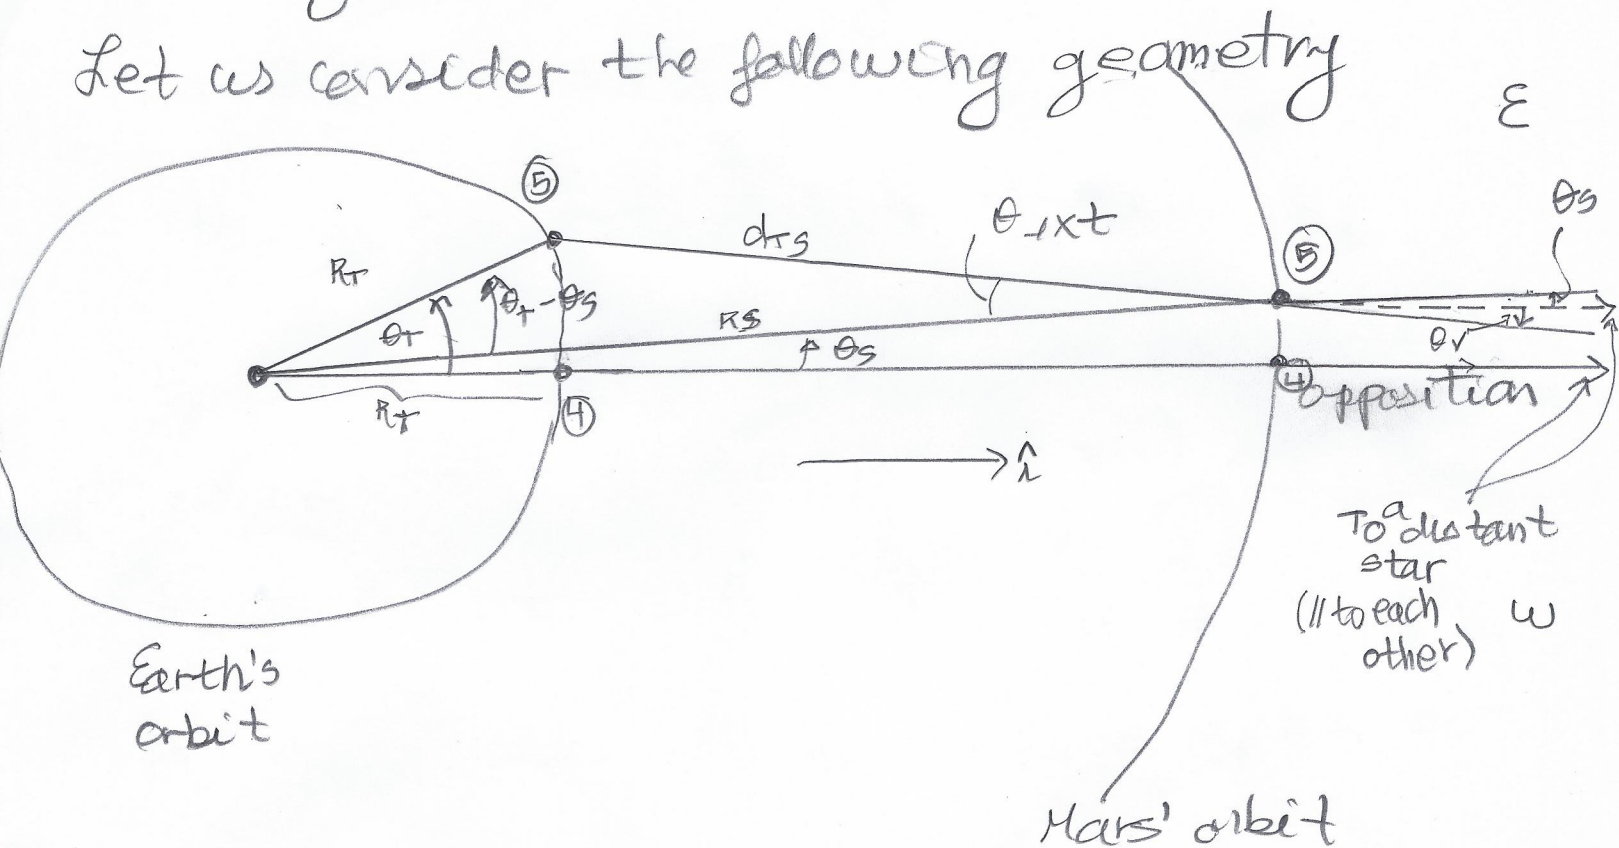 Let us consider the following geometry
ε
⑤
θs
dTS
θ_ext
⑤
RT
θT
θT-θs
RS
θs
θv
RT
④
④
opposition
î
To a distant
star
(// to each
other)
ω
Earth's
orbit
Mars' orbit